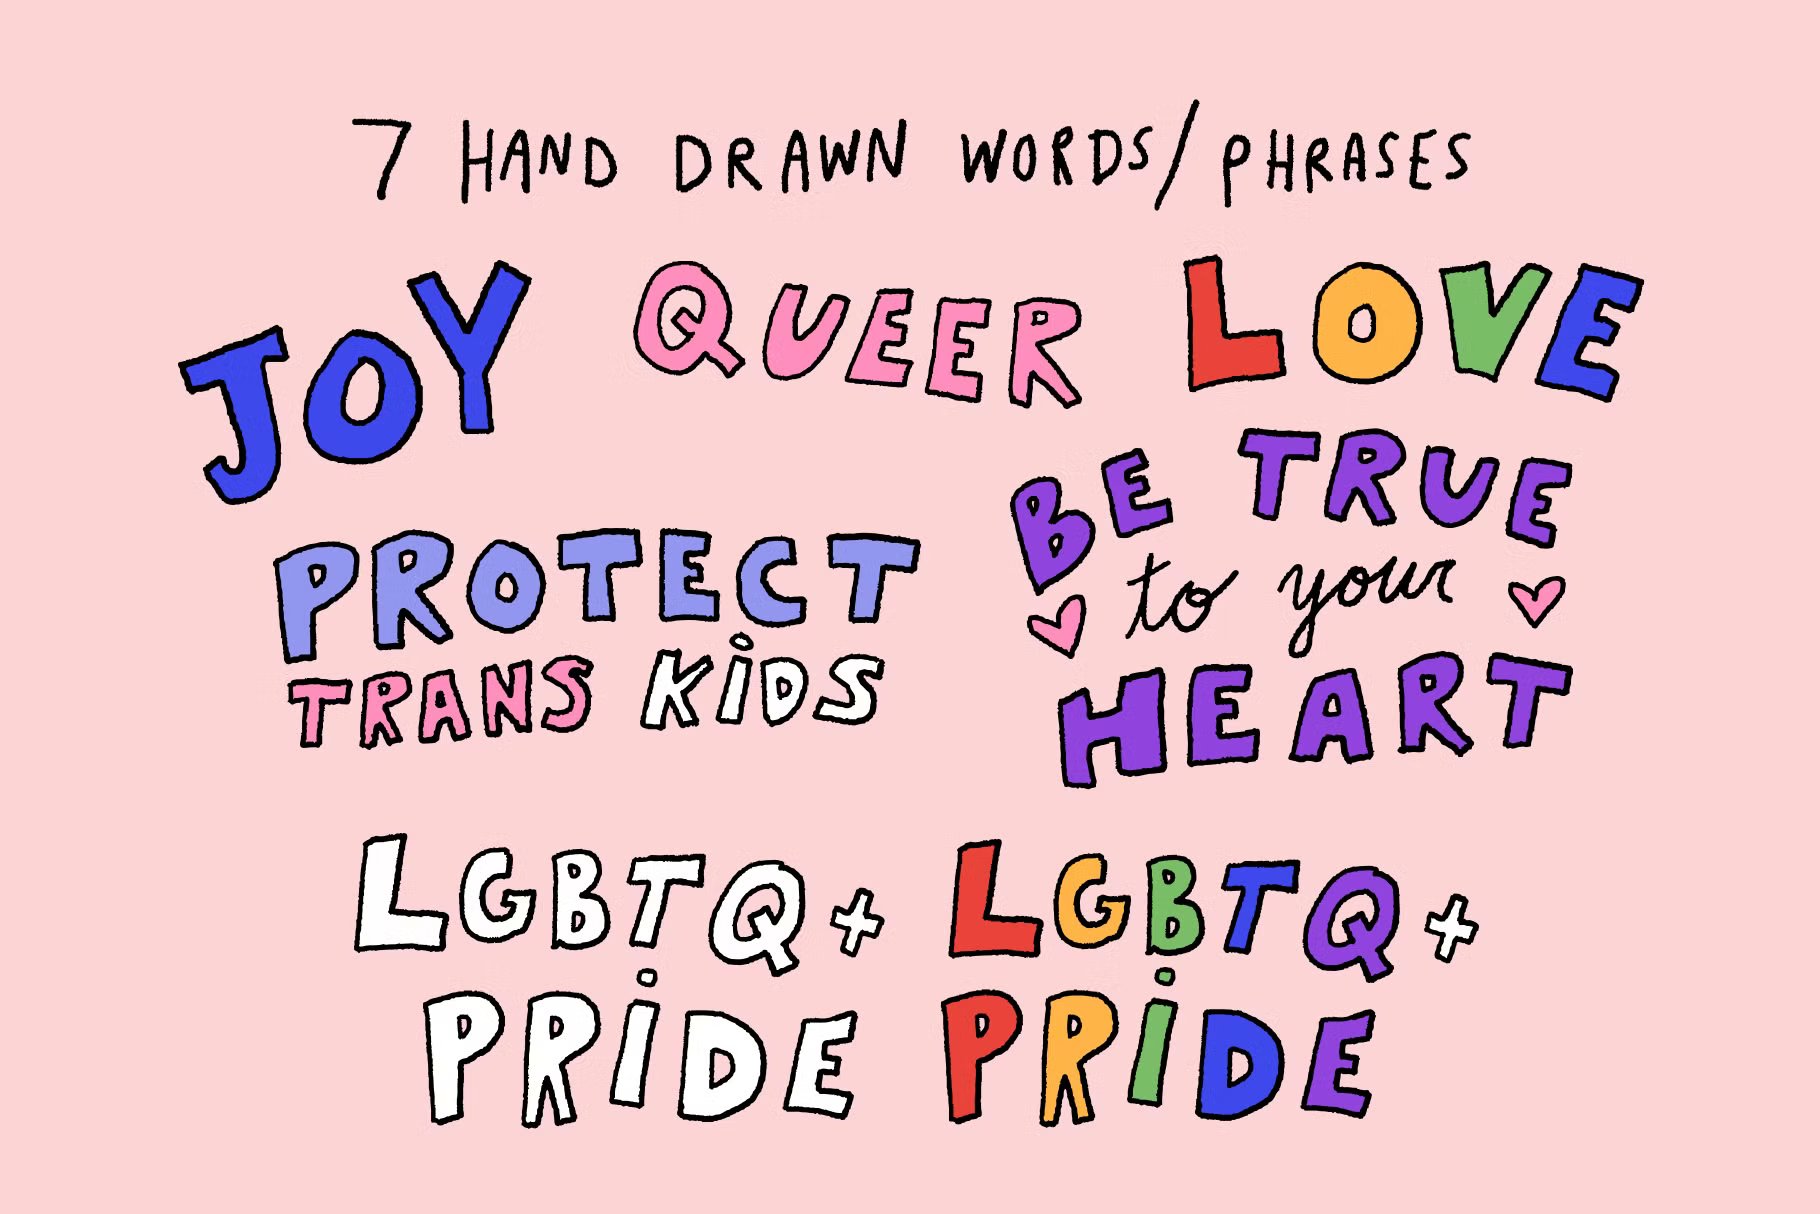 7 HAND DRAWN WORDS/PHRASES
JOY
QUEER
LOVE
PROTECT
TRANS KiDS
BE TRUE
to your
HEART
LGBTQ+
PRiDE
LGBTQ+
PRiDE